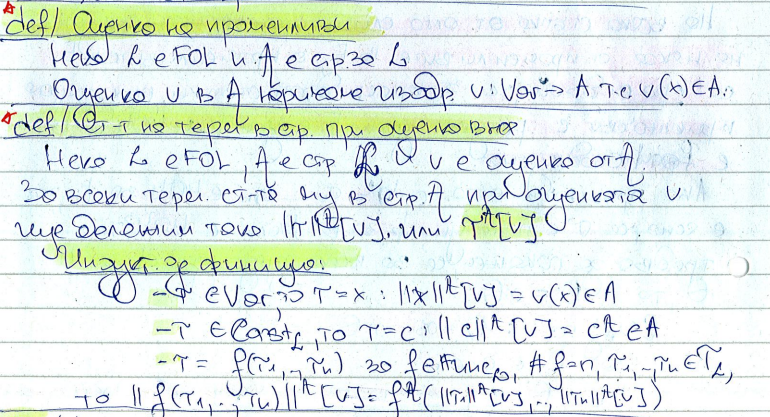 def/ Оценка на променливи
Нека L е FOL и A е стр. за L
Оценка v в A наричаме изобр. v: Var → A т.е. v(x) ∈ A.
def/ Ст-т на терм в стр. при оценка в нея
Нека L е FOL, A е стр L и v е оценка от A.
За всеки терм. ст-та му в стр. A при оценката v
ще бележим така ||τ||^A[v], или τ^A[v].
Индукт. дефиниция:
- τ ∈ Var, то τ = x : ||x||^A[v] = v(x) ∈ A
- τ ∈ Const_L, то τ = c : ||c||^A[v] = c^A ∈ A
- τ = f(τ₁,..,τₙ) за f ∈ Func_L, #f = n, τ₁,..,τₙ ∈ T_L,
то ||f(τ₁,..,τₙ)||^A[v] = f^A(||τ₁||^A[v],..,||τₙ||^A[v])